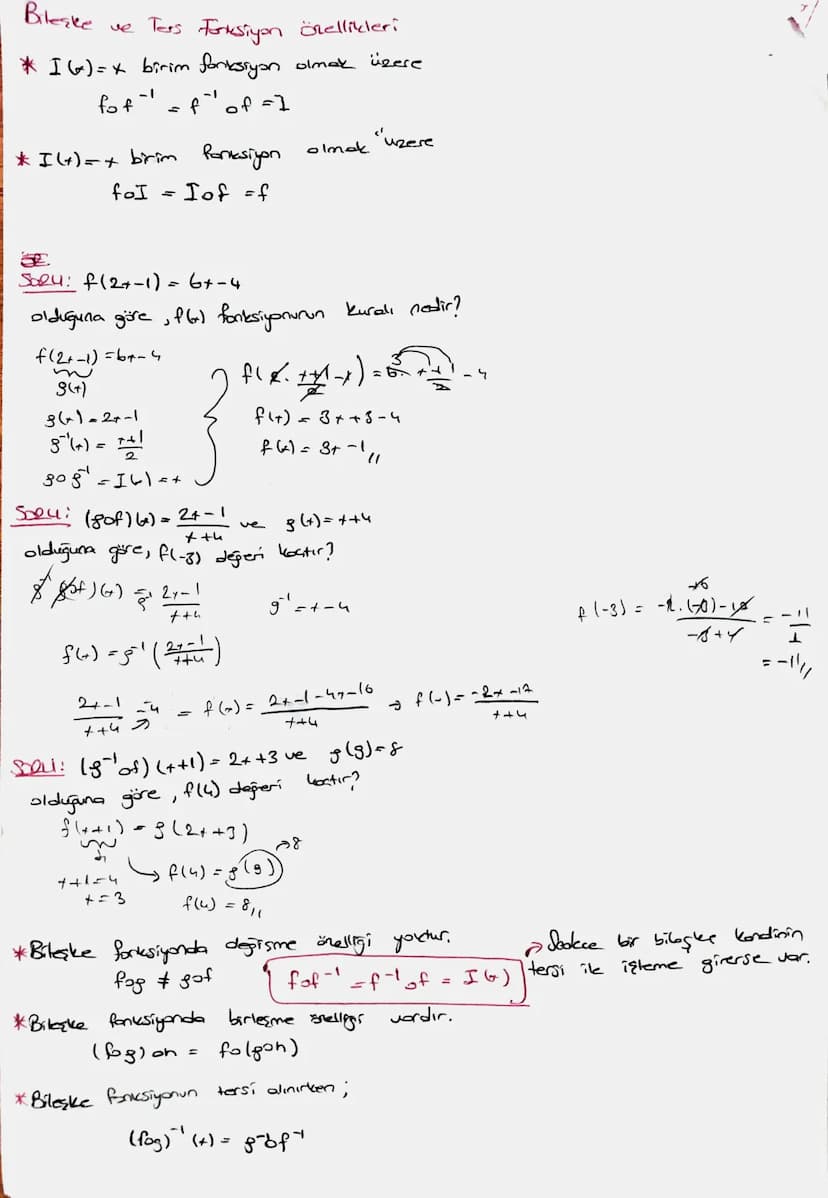 Bileşke ve Ters Fonksiyon Özellikleri
* I(x)=x birim fonksiyon olmak üzere
fof⁻¹ = f⁻¹of = I
* I(x)=x birim fonksiyon olmak üzere
foI = Iof = f
Soru: f(2x-1) = 6x-4
olduğuna göre, f(x) fonksiyonunun kuralı nedir?
f(2x-1) = 6x-4
g(x)
g(x) = 2x-1
g⁻¹(x) = (x+1)/2
gog⁻¹ = I(x) = x
f(2. (x+1)/2 -1) = 6. (x+1)/2 - 4
3
f(x) = 3x+3-4
f(x) = 3x-1//
Soru: (gof)(x) = (2x-1)/(x+4) ve g(x) = x+4
olduğuna göre, f(-3) değeri kaçtır?
g⁻¹ (gof)(x) = g⁻¹ (2x-1)/(x+4)
g⁻¹ = x-4
f(x) = g⁻¹((2x-1)/(x+4))
(2x-1)/(x+4) -4 = f(x) = (2x-1-4x-16)/(x+4) → f(x) = (-2x-17)/(x+4)
= -11/1
= -11//
Soru: (g⁻¹of)(x+1) = 2x+3 ve g(9)=8
olduğuna göre, f(4) değeri kaçtır?
f(x+1) = g(2x+3)
x+1=4
x=3
f(4) = g(9) → 8
f(4) = 8//
* Bileşke fonksiyonda değişme özelliği yoktur.
fog ≠ gof
fof⁻¹ = f⁻¹of = I(x)
Sadece bir bileşke kendinin
tersi ile işleme girerse var.
* Bileşke fonksiyonda birleşme özelliği vardır.
(fog)oh = fo(goh)
* Bileşke fonksiyonun tersi alınırken;
(fog)⁻¹(x) = g⁻¹of⁻¹